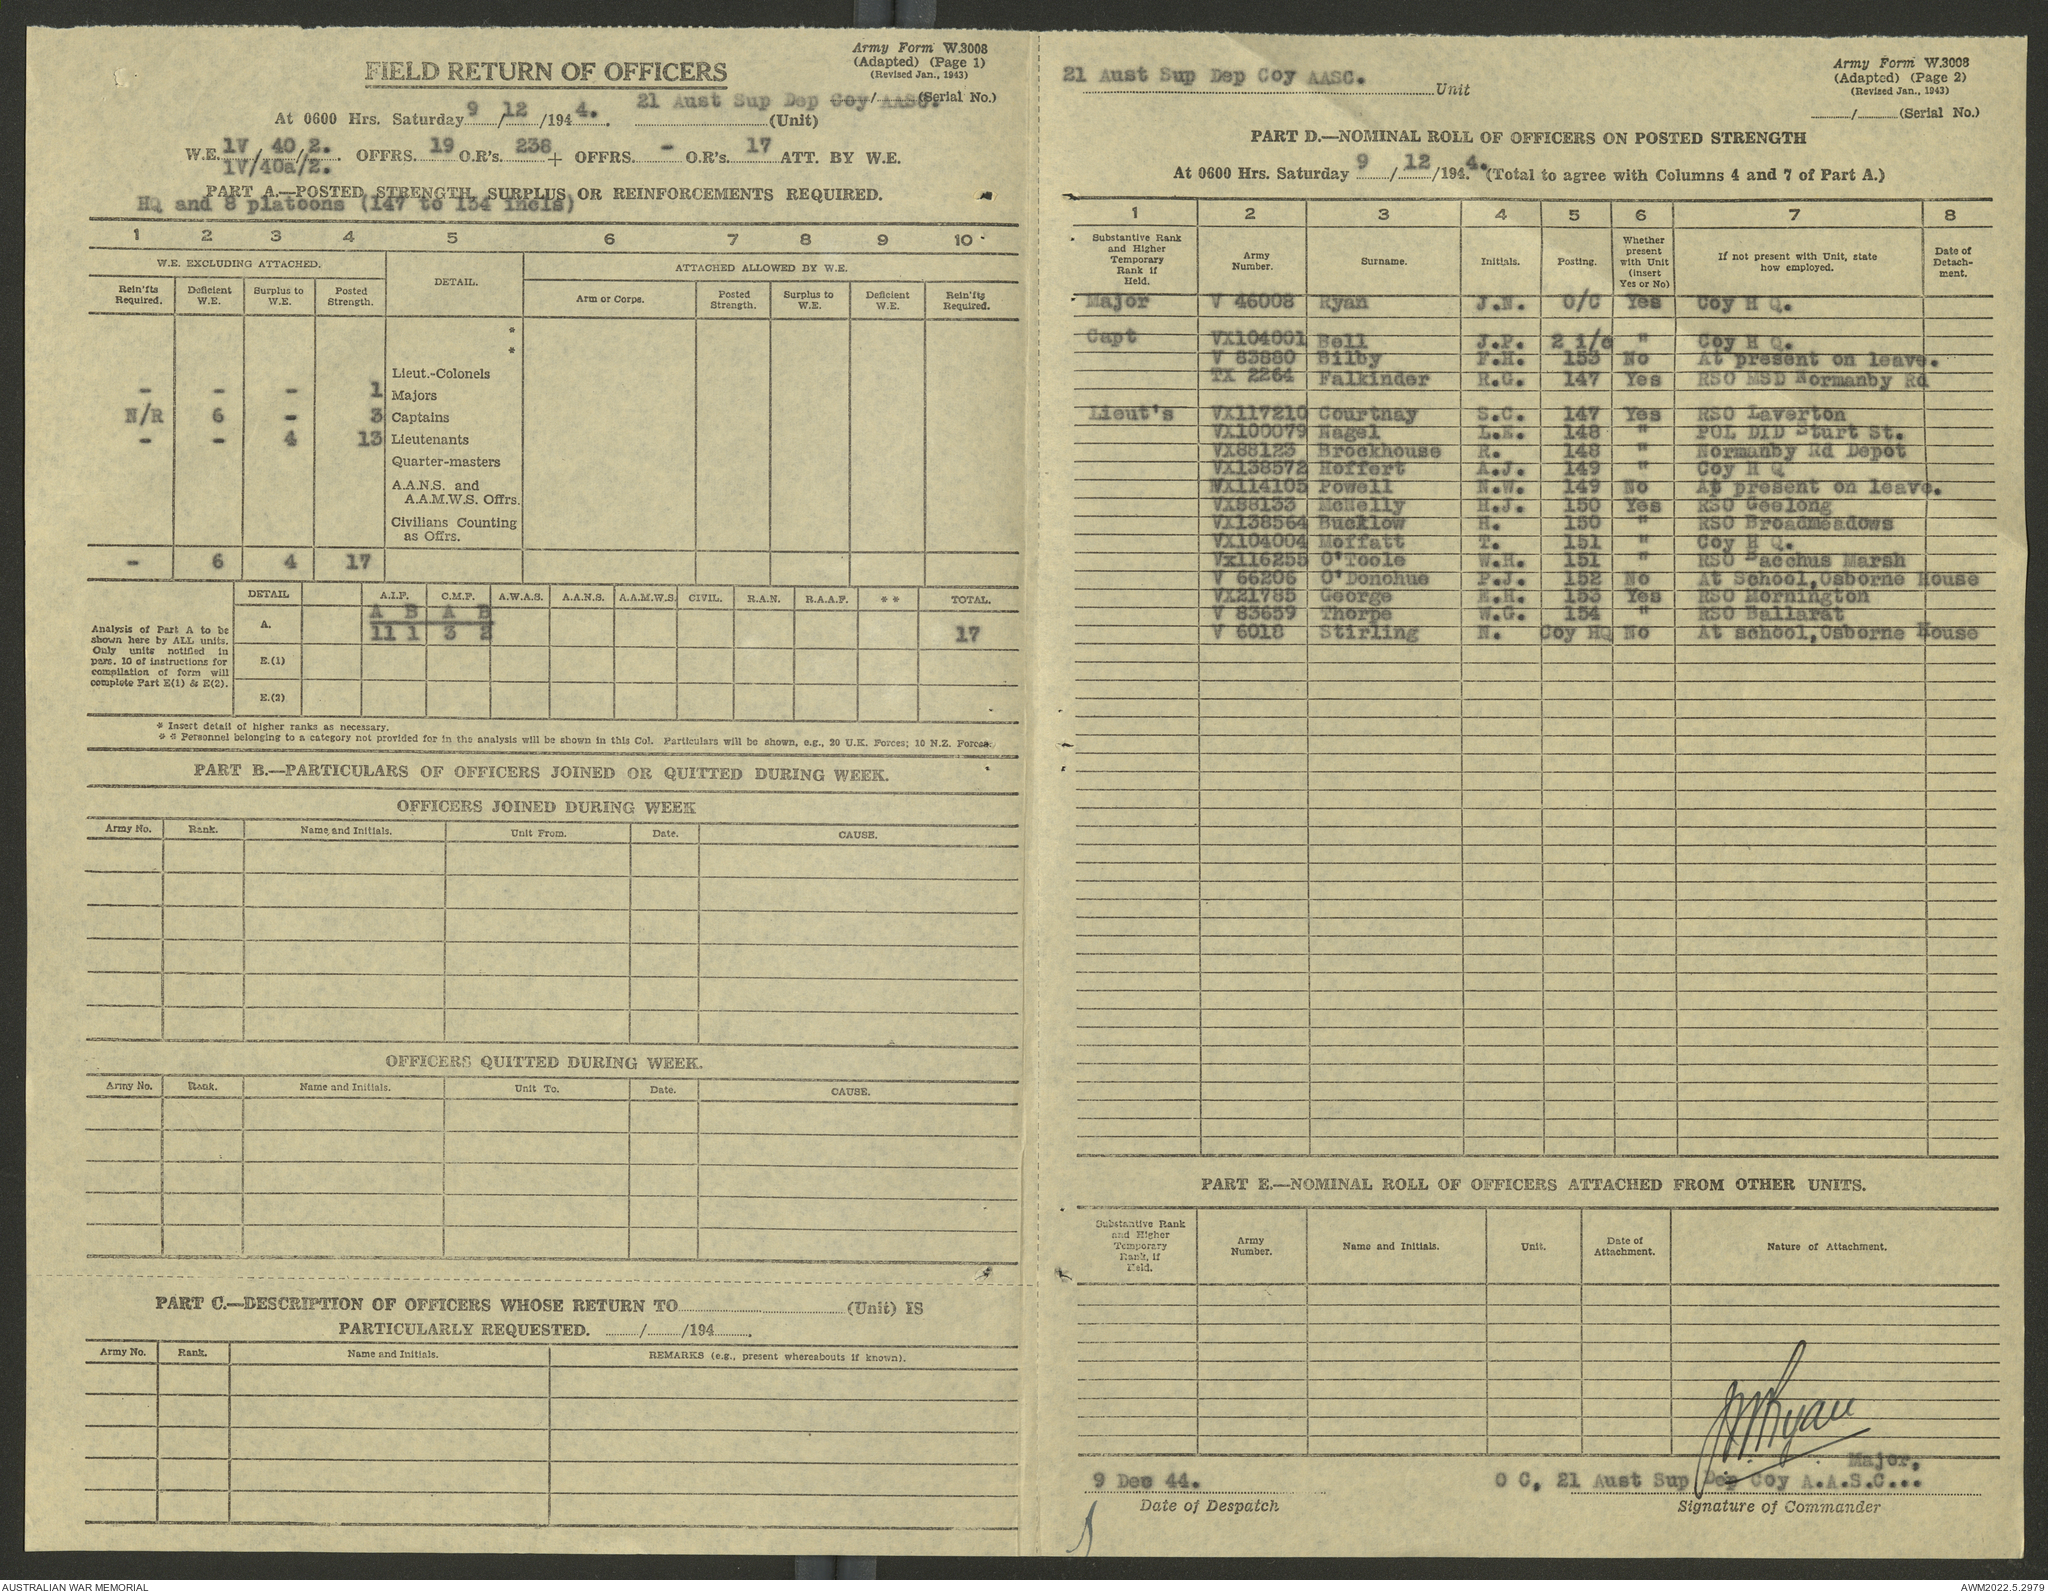 Army Form W.3008
(Adapted) (Page 1)
(Revised Jan., 1943)
FIELD RETURN OF OFFICERS
21 Aust Sup Dep Coy AASC.
/ (Serial No.)
At 0600 Hrs. Saturday 9/12/1944. (Unit)
W.E. 1V/40/2. OFFRS. 19 O.R's. 236 + OFFRS. - O.R's. 17 ATT. BY W.E.
1V/40a/2.
PART A.—POSTED STRENGTH, SURPLUS OR REINFORCEMENTS REQUIRED.
HQ and 8 platoons (147 to 154 incls)
1 2 3 4 5 6 7 8 9 10
W.E. EXCLUDING ATTACHED. DETAIL. ATTACHED ALLOWED BY W.E.
Rein'fts Required. Deficient W.E. Surplus to W.E. Posted Strength. Arm or Corps. Posted Strength. Surplus to W.E. Deficient W.E. Rein'fts Required.
*
*
Lieut.-Colonels
- - - 1 Majors
N/R 6 - 3 Captains
- - 4 13 Lieutenants
Quarter-masters
A.A.N.S. and
A.A.M.W.S. Offrs.
Civilians Counting
as Offrs.
- 6 4 17
DETAIL A.I.F. C.M.F. A.W.A.S. A.A.N.S. A.A.M.W.S. CIVIL. R.A.N. R.A.A.F. * * TOTAL.
A B A B
A. 11 1 3 2 17
E.(1)
E.(2)
Analysis of Part A to be
shown here by ALL units.
Only units notified in
para. 10 of instructions for
compilation of form will
complete Part E(1) & E(2).
* Insert detail of higher ranks as necessary.
* * Personnel belonging to a category not provided for in the analysis will be shown in this Col. Particulars will be shown, e.g., 20 U.K. Forces; 10 N.Z. Forces.
PART B.—PARTICULARS OF OFFICERS JOINED OR QUITTED DURING WEEK.
OFFICERS JOINED DURING WEEK
Army No. Rank. Name and Initials. Unit From. Date. CAUSE.
OFFICERS QUITTED DURING WEEK.
Army No. Rank. Name and Initials. Unit To. Date. CAUSE.
PART C.—DESCRIPTION OF OFFICERS WHOSE RETURN TO (Unit) IS
PARTICULARLY REQUESTED. / /194 .
Army No. Rank. Name and Initials. REMARKS (e.g., present whereabouts if known).
Army Form W.3008
(Adapted) (Page 2)
(Revised Jan., 1943)
21 Aust Sup Dep Coy AASC. Unit
/ (Serial No.)
PART D.—NOMINAL ROLL OF OFFICERS ON POSTED STRENGTH
At 0600 Hrs. Saturday 9/12/1944. (Total to agree with Columns 4 and 7 of Part A.)
1 2 3 4 5 6 7 8
Substantive Rank and Higher Temporary Rank if Held. Army Number. Surname. Initials. Posting. Whether present with Unit (insert Yes or No) If not present with Unit, state how employed. Date of Detach-ment.
Major V 46008 Ryan J.N. O/C Yes Coy H Q.
Capt VX104001 Bell J.P. 2 i/c " Coy H Q.
V 83880 Bilby F.H. 153 No At present on leave.
TX 2264 Falkinder R.G. 147 Yes RSO MSD Normanby Rd
Lieut's VX117210 Courtnay S.C. 147 Yes RSO Laverton
VX100079 Nagel L.E. 148 " POL DID Sturt St.
VX88123 Brockhouse R. 148 " Normanby Rd Depot
VX138572 Hoffert A.J. 149 " Coy H Q
NX114105 Powell N.W. 149 No At present on leave.
VX88133 McNelly H.J. 150 Yes RSO Geelong
VX138564 Bucklow H. 150 " RSO Broadmeadows
VX104004 Moffatt T. 151 " Coy H Q.
Vx116255 O'Toole W.H. 151 " RSO Bacchus Marsh
V 66206 O'Donohue P.J. 152 No At School,Osborne House
VX21785 George E.H. 153 Yes RSO Mornington
V 83659 Thorpe W.G. 154 " RSO Ballarat
V 6018 Stirling N. Coy HQ No At school,Osborne House
PART E.—NOMINAL ROLL OF OFFICERS ATTACHED FROM OTHER UNITS.
Substantive Rank and Higher Temporary Rank, if Held. Army Number. Name and Initials. Unit. Date of Attachment. Nature of Attachment.
JN Ryan
Major,
9 Dec 44. O C, 21 Aust Sup Dep Coy A.A.S.C...
Date of Despatch Signature of Commander
AUSTRALIAN WAR MEMORIAL AWM2022.5.2979